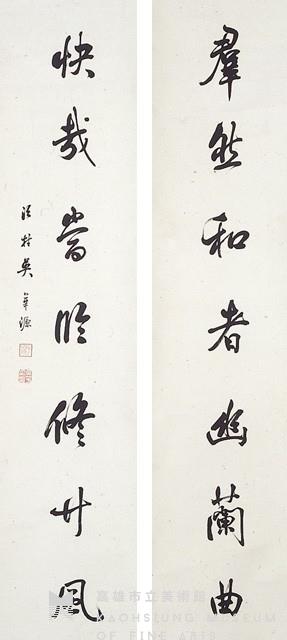 羣然和者幽蘭曲
快哉當臨修竹風
吳
源
高雄市立美術館
KAOHSIUNG MUSEUM
OF FINE ARTS